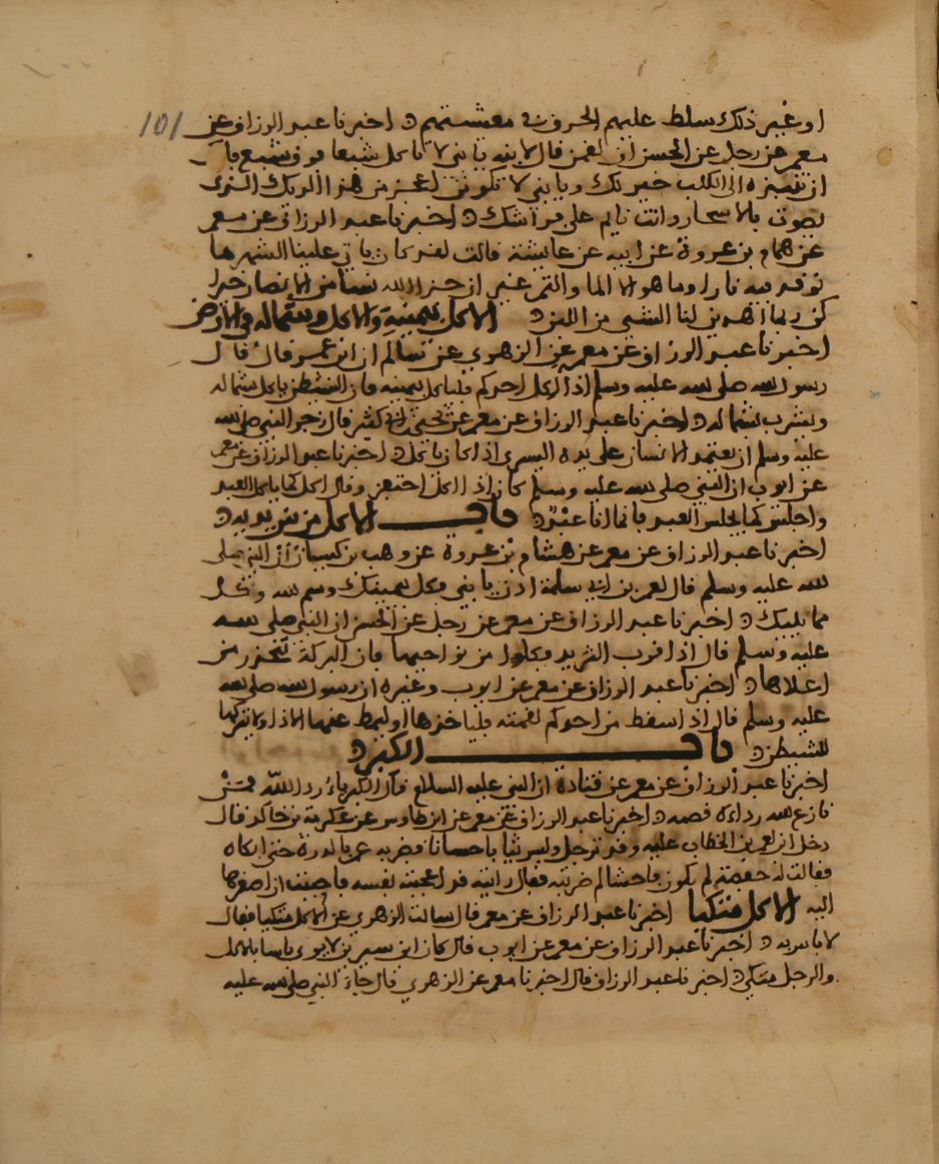 او غير ذلك سلط عليهم الحرف في معيشتهم اخبرنا عبد الرزاق عن 101
معمر عن رجل عن الحسن ان لقمن قال لابنه يا بني لا تاكل شبعا فوق شبع فا
ان تنبذه الى الكلب خير لك ويا بني لا تكونن اعجز من هذا الديك الذي
يصوت بالاسحار وانت نايم على فراشك اخبرنا عبد الرزاق عن معمر
عن هشام بن عروة عن ابيه عن عايشة قالت لقد كان ياتي علينا الشهر ما
نوقد فيه نارا وما هو الا الما والتمر غير ان جزا الله نسا من الانصار خيرا
كن ربما اهدين لنا الشي من اللبن الاكل بيمينه والاكل وشماله في الارض
اخبرنا عبد الرزاق عن معمر عن الزهري عن سالم ان ابن عمر قال قال
رسول الله صلى الله عليه وسلم اذا اكل احدكم فلياكل بيمينه فان الشيطن ياكل بشماله
ويشرب بشماله اخبرنا عبد الرزاق عن معمر عن يحيى بن ابي كثير قال زجر النبي صلى الله
عليه وسلم ان يعتمد الانسان على يده اليسرى اذا كان ياكل اخبرنا عبد الرزاق عن معمر
عن ايوب ان النبي صلى الله عليه وسلم كان اذا اكل احتفز وقال اكل كما ياكل العبد
واجلس كما يجلس العبد فانما انا عبد باب الاكل من بين يديه
اخبرنا عبد الرزاق عن معمر عن هشام بن عروة عن وهب بن كيسان ان النبي صلى
الله عليه وسلم قال لعمر بن ابي سلمة ادن يا بني فكل بيمينك وسم الله وكل
مما يليك اخبرنا عبد الرزاق عن معمر عن رجل عن الحسن ان النبي صلى الله
عليه وسلم قال اذا قرب الثريد فكلوا من نواحيها فان البركة تتحدر من
اعلاها اخبرنا عبد الرزاق عن معمر عن ايوب وغيره ان رسول الله صلى الله
عليه وسلم قال اذا سقط من احدكم لقمته فلياخذها وليمط عنها الاذا ولا يتركها
للشيطن باب الكبر
اخبرنا عبد الرزاق عن معمر عن قتادة ان النبي عليه السلام قال الكبرياء رداء الله فمن
نازع الله رداءه قصمه اخبرنا عبد الرزاق عن معمر عن ابن طاوس عن عكرمة بن خالد قال
دخل ابن لعمر بن الخطاب عليه وقد ترجل ولبس ثيابا حسانا فضربه عمر بالدرة حتى ابكاه
فقالت له حفصة لم يكون فاحشا لم ضربته فقال رايته قد اعجبته نفسه فاحببت ان اصغرها
اليه الاكل متكيا اخبرنا عبد الرزاق عن معمر قال سالت الزهري عن الاكل متكيا فقال
لا باس به اخبرنا عبد الرزاق عن معمر عن ايوب قال كان ابن سيرين لا يرى باسا بالاكل
والرجل متكي اخبرنا عبد الرزاق قال اخبرنا معمر عن الزهري قال جاء النبي صلى الله عليه